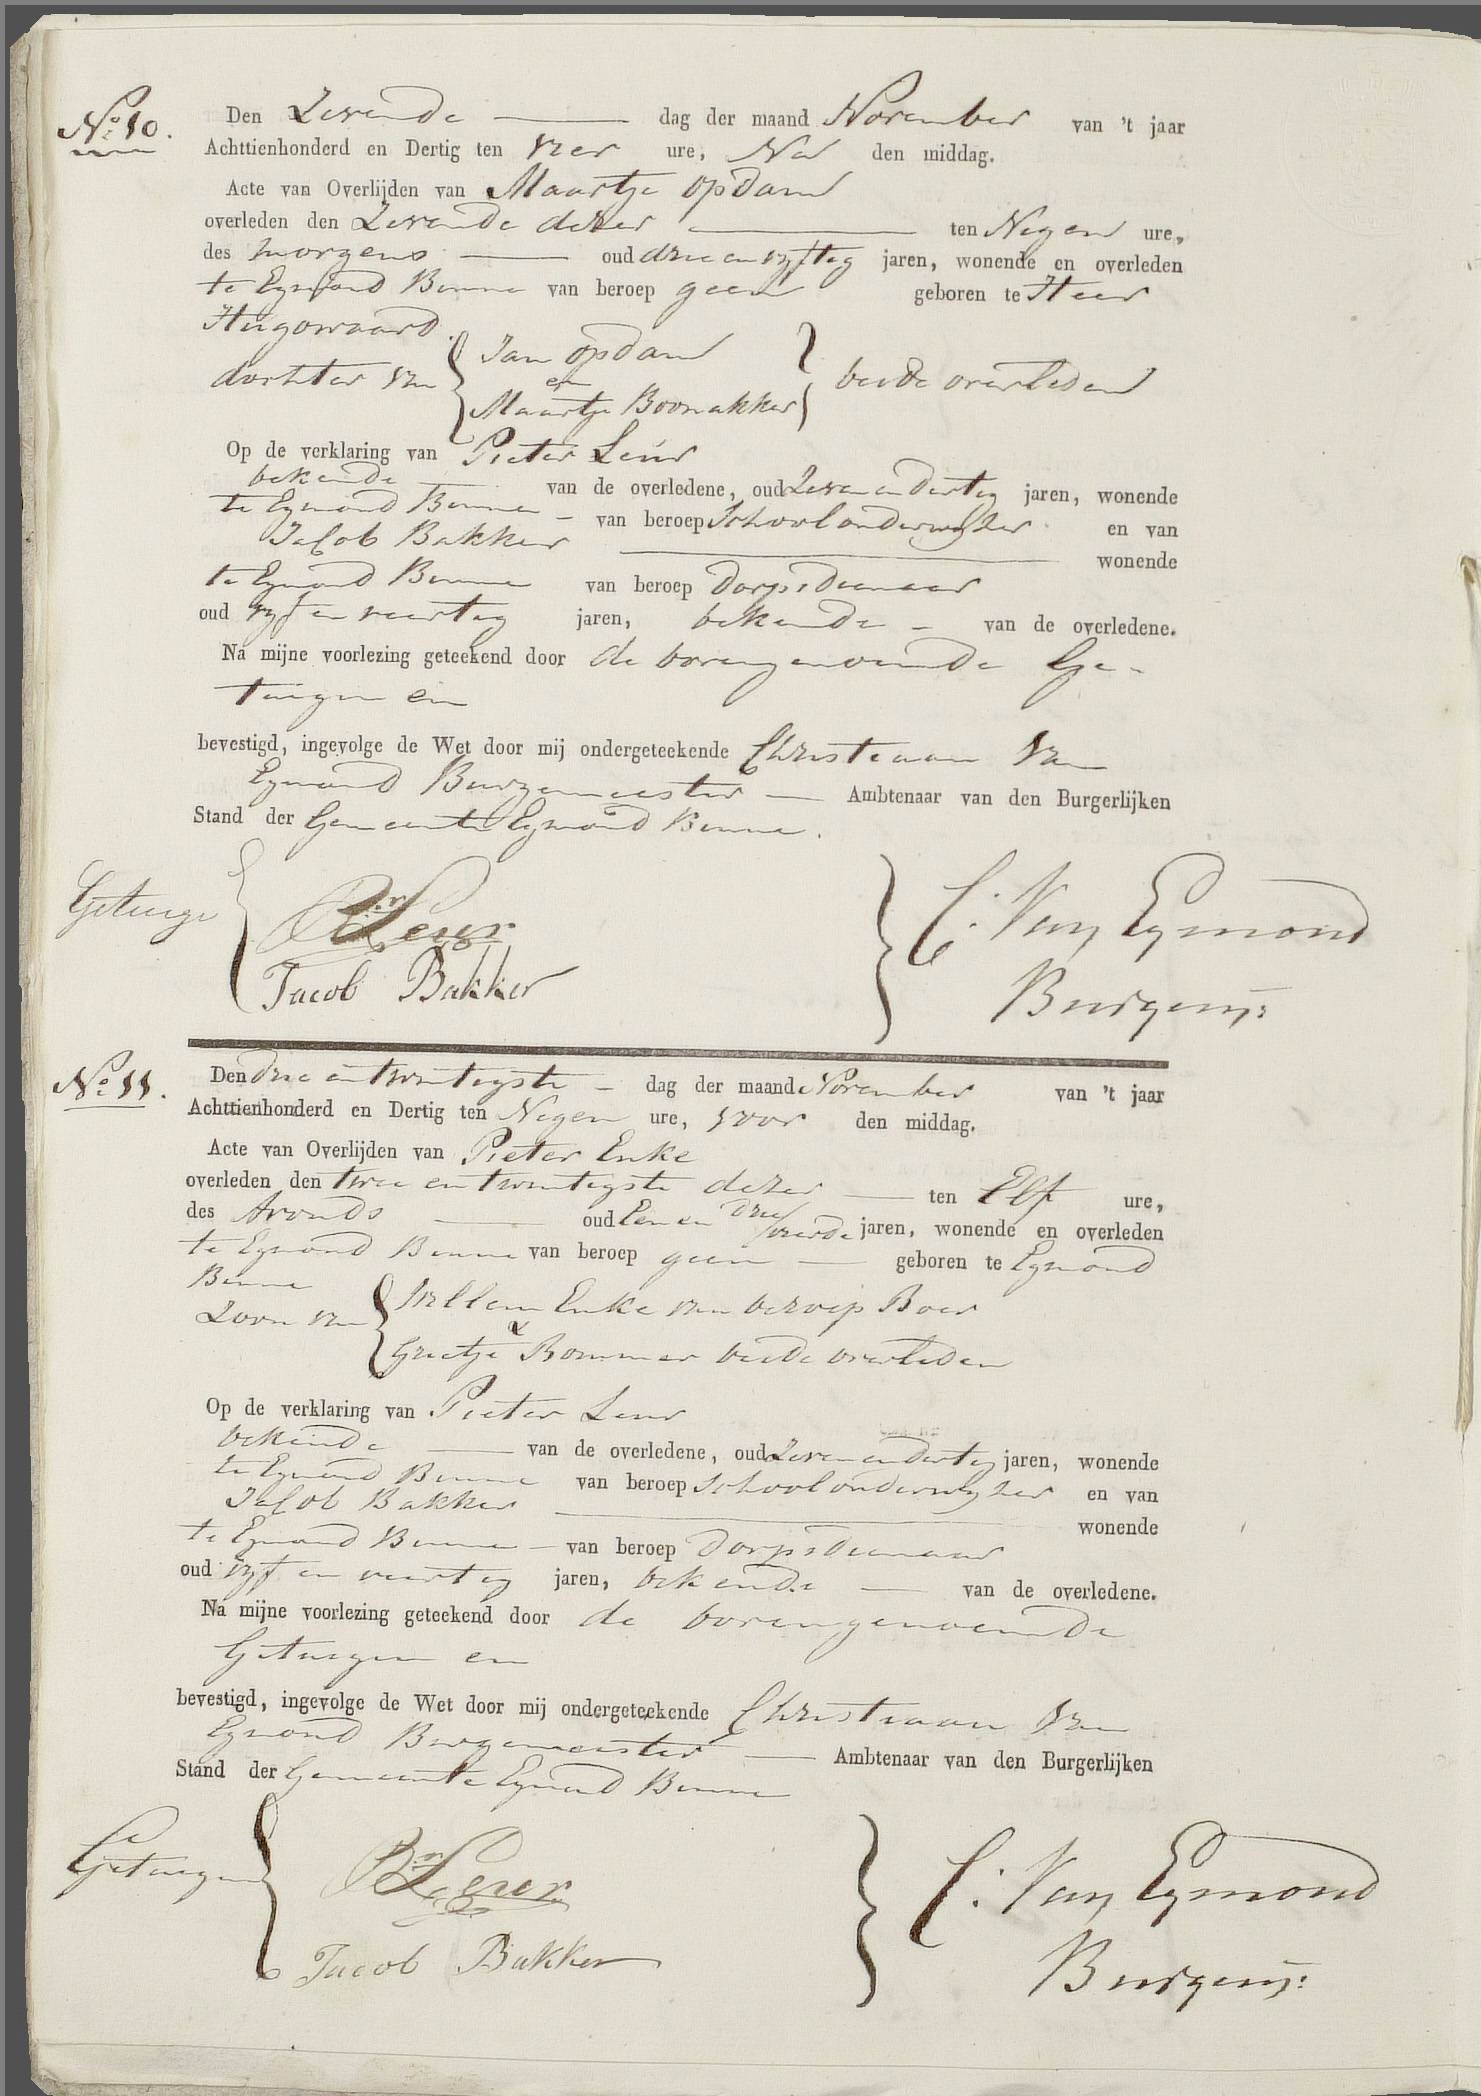 No 10. Den Zevende dag der maand November van 't jaar
Achttienhonderd en Dertig ten vier ure, Na den middag.
Acte van Overlijden van Maartje Opdam
overleden den Zevende dezer ten Negen ure,
des morgens oud drie en vyftig jaren, wonende en overleden
te Egmond Binne van beroep geen geboren te Heer
Hugowaard
dochter van { Jan Opdam
en
Maartje Boonakker } beide overleden
Op de verklaring van Pieter Leur
bekende van de overledene, oud Zeven en dertig jaren, wonende
te Egmond Binne van beroep Schoolonderwyzer en van
Jacob Bakker wonende
te Egmond Binne van beroep dorpsdienaar
oud vyf en veertig jaren, bekende van de overledene.
Na mijne voorlezing geteekend door de bovengenoemde Ge-
tuigen en
bevestigd, ingevolge de Wet door mij ondergeteekende Christiaan Van
Egmond Burgemeester Ambtenaar van den Burgerlijken
Stand der Gemeente Egmond Binne.
Getuige { Pr Leur
Jacob Bakker } C. Van Egmond
Burgemr:
No 11. Den drie en twintigste dag der maand November van 't jaar
Achttienhonderd en Dertig ten Negen ure, voor den middag.
Acte van Overlijden van Pieter Enke
overleden den twee en twintigste dezer ten Elf ure,
des Avonds oud Een en drie/vierde jaren, wonende en overleden
te Egmond Binne van beroep geen geboren te Egmond
Binne
Zoon van { Willem Enke van beroep Boer
&
Grietje Bommer beide overleden
Op de verklaring van Pieter Leur
bekende van de overledene, oud Zeven en dertig jaren, wonende
te Egmond Binne van beroep Schoolonderwyzer en van
Jacob Bakker wonende
te Egmond Binne van beroep dorpsdienaar
oud vyf en veertig jaren, bekende van de overledene.
Na mijne voorlezing geteekend door de bovengenoemde
Getuigen en
bevestigd, ingevolge de Wet door mij ondergeteekende Christiaan Van
Egmond Burgemeester Ambtenaar van den Burgerlijken
Stand der Gemeente Egmond Binne
Getuigen { Pr Leur
Jacob Bakker } C. Van Egmond
Burgemr: